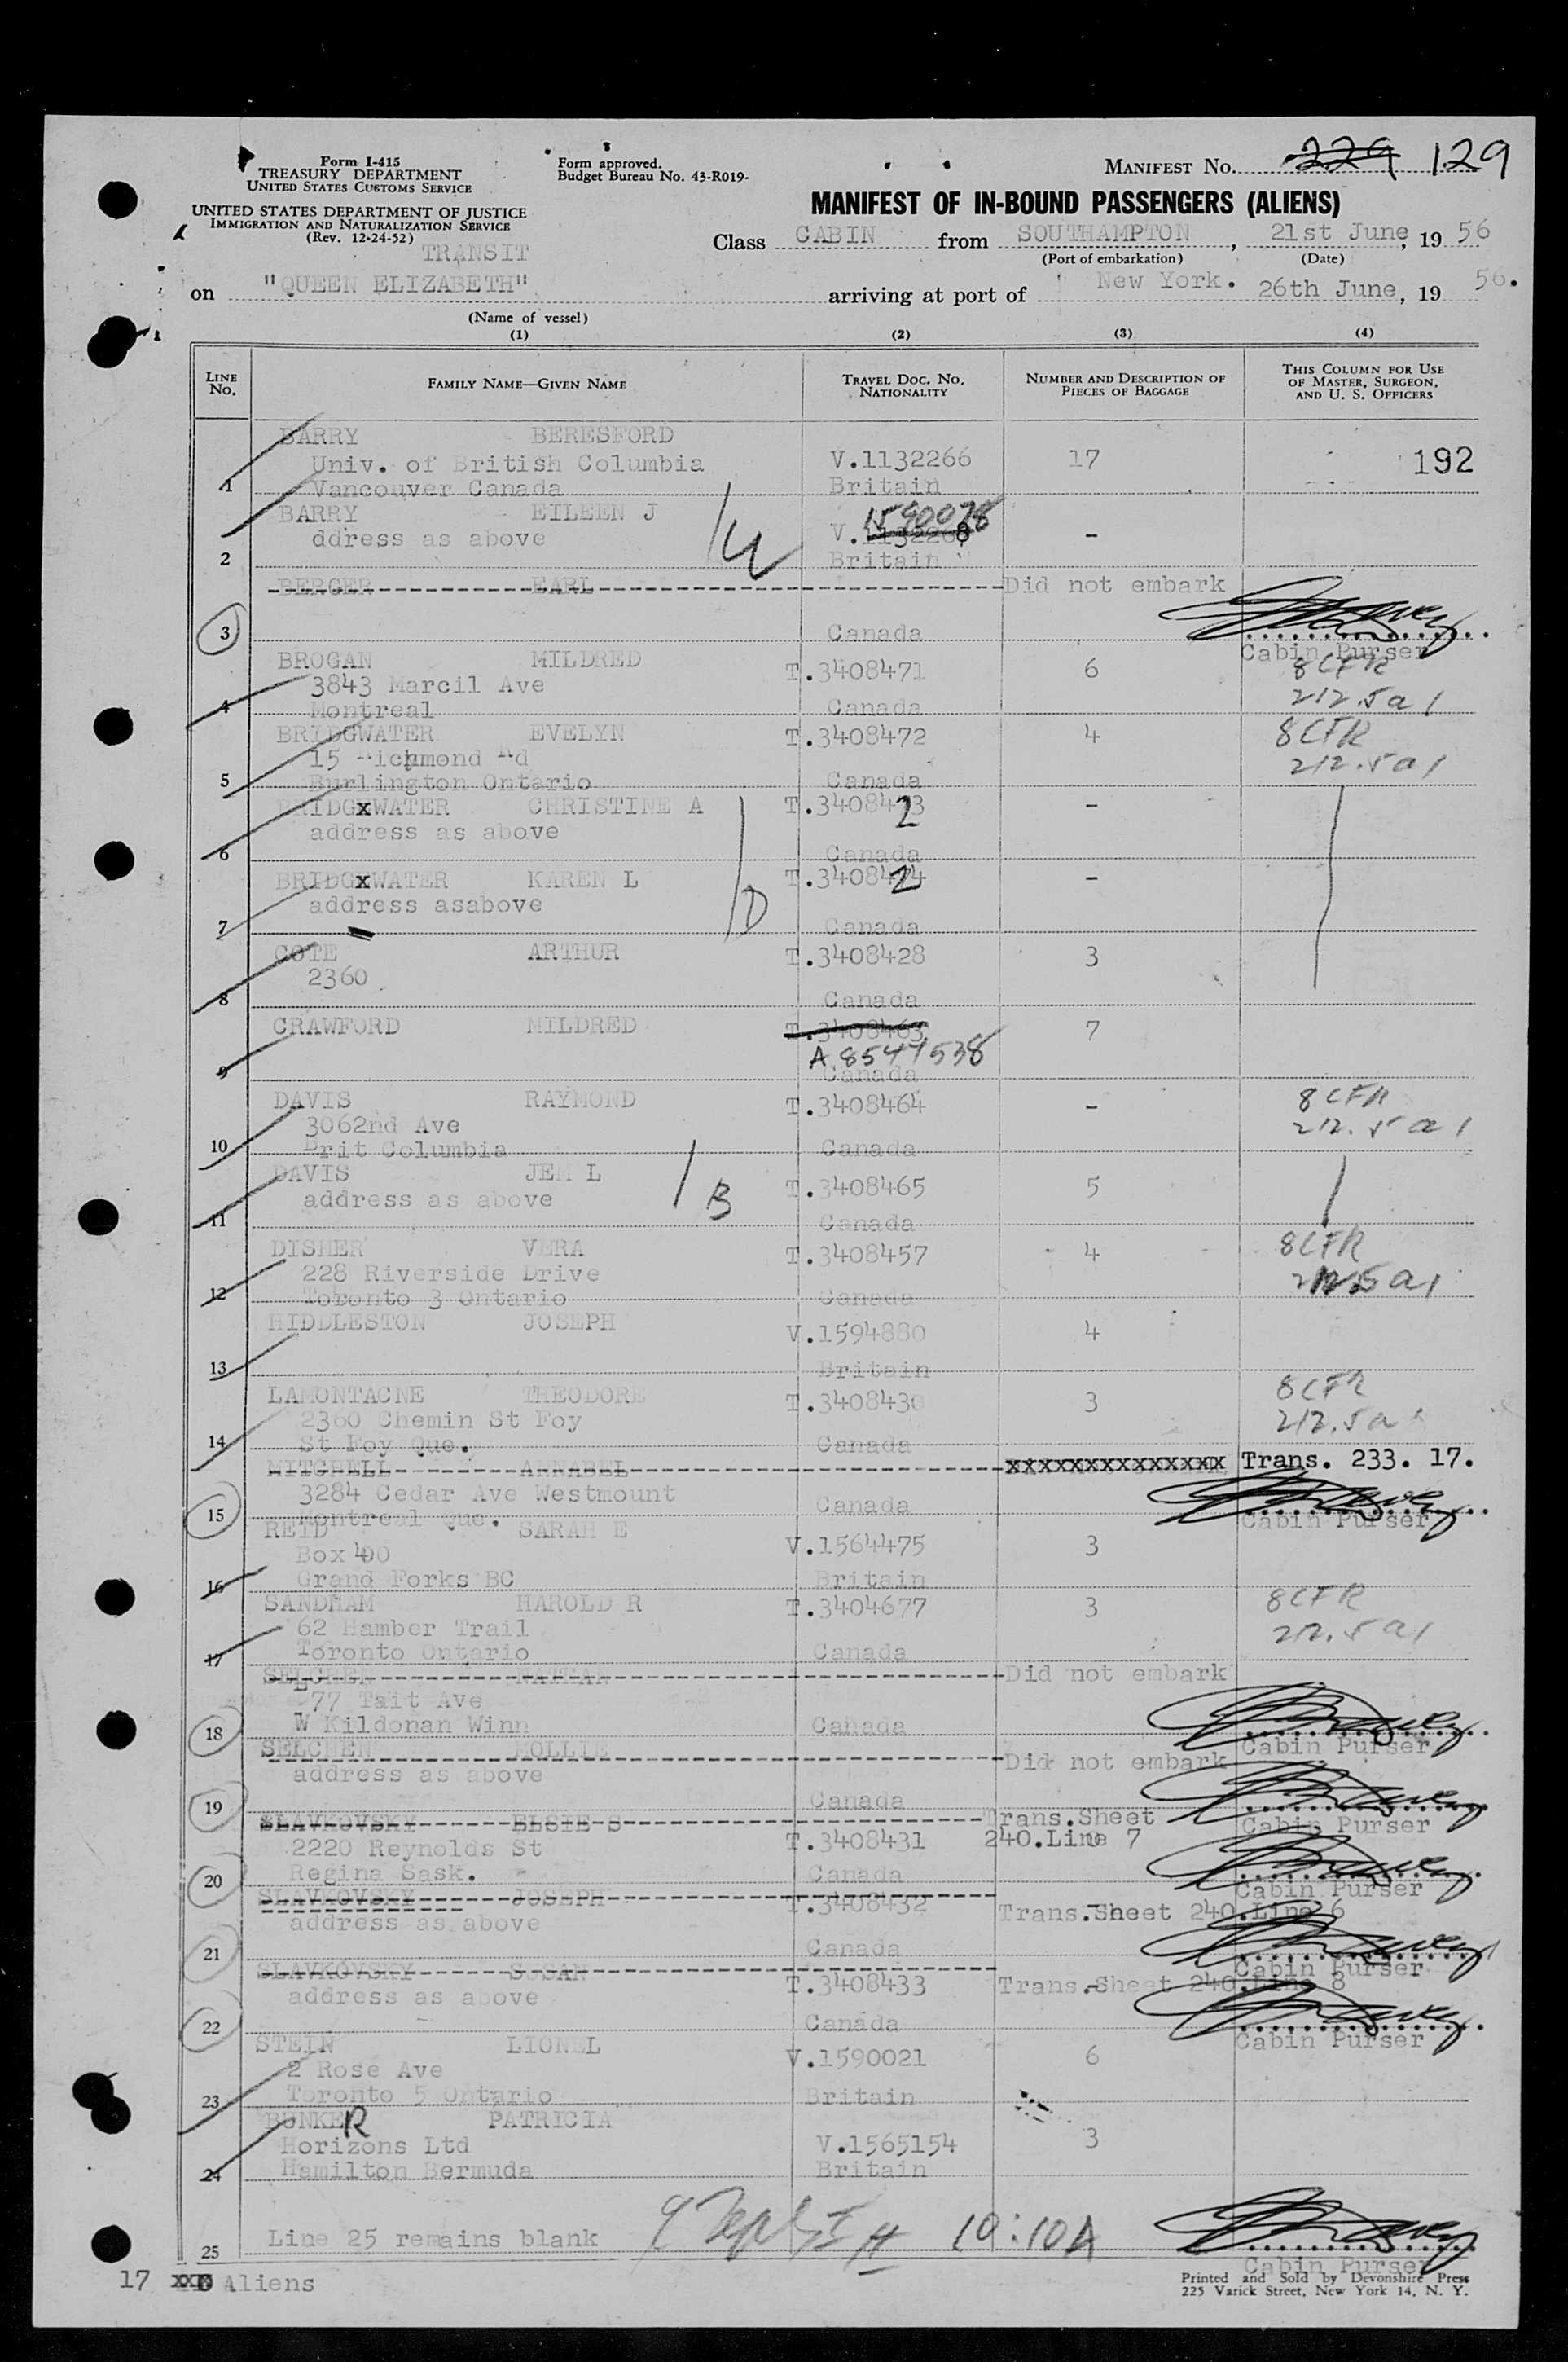 Form I-415
TREASURY DEPARTMENT
UNITED STATES CUSTOMS SERVICE
Form approved.
Budget Bureau No. 43-R019-
MANIFEST No. 229 129
UNITED STATES DEPARTMENT OF JUSTICE
IMMIGRATION AND NATURALIZATION SERVICE
(Rev. 12-24-52)
MANIFEST OF IN-BOUND PASSENGERS (ALIENS)
TRANSIT
Class CABIN from SOUTHAMPTON, 21st June, 19 56
(Port of embarkation) (Date)
on "QUEEN ELIZABETH" arriving at port of New York. 26th June, 19 56.
(Name of vessel)
(1) (2) (3) (4)
LINE No.
FAMILY NAME—GIVEN NAME
TRAVEL DOC. NO. NATIONALITY
NUMBER AND DESCRIPTION OF PIECES OF BAGGAGE
THIS COLUMN FOR USE OF MASTER, SURGEON, AND U. S. OFFICERS
BARRY BERESFORD
Univ. of British Columbia V.1132266 17 192
1 Vancouver Canada Britain
BARRY EILEEN J 1590078
ddress as above V.1132268 -
2 Britain
W
BERGER EARL Did not embark
3 Canada
Cabin Purser
BROGAN MILDRED T.3408471 6 8 CFR
3843 Marcil Ave 212.5a1
4 Montreal Canada
BRIDGWATER EVELYN T.3408472 4 8 CFR
15 Richmond Rd 212.5a1
5 Burlington Ontario Canada
BRIDGxWATER CHRISTINE A T.3408473 2 -
address as above
6 Canada
BRIDGxWATER KAREN L T.3408474 2 -
address asabove D
7 Canada
COTE ARTHUR T.3408428 3
2360
8 Canada
CRAWFORD MILDRED T.3408463 7
A 8544538
9 Canada
DAVIS RAYMOND T.3408464 - 8 CFR
3062nd Ave 212.5a1
10 Brit Columbia Canada
DAVIS JEM L T.3408465 5
address as above B
11 Canada
DISHER VERA T.3408457 4 8 CFR
228 Riverside Drive 212.5a1
12 Toronto 3 Ontario Canada
HIDDLESTON JOSEPH V.1594880 4
13 Britain
LAMONTAGNE THEODORE T.3408430 3 8 CFR
2360 Chemin St Foy 212.5a1
14 St Foy Que. Canada
MITCHELL ANNABEL xxxxxxxxxxxxxx Trans. 233. 17.
3284 Cedar Ave Westmount Canada
15 Montreal Que. Cabin Purser
REID SARAH E V.1564475 3
Box 400
16 Grand Forks BC Britain
SANDHAM HAROLD R T.3404677 3 8 CFR
62 Hamber Trail 212.5a1
17 Toronto Ontario Canada
SELCHEN NATHAN Did not embark
77 Tait Ave
18 W Kildonan Winn Canada
Cabin Purser
SELCHEN MOLLIE Did not embark
address as above
19 Canada
Cabin Purser
SLAVKOVSKY ELSIE S Trans.Sheet
2220 Reynolds St T.3408431 240.Line 7
20 Regina Sask. Canada
Cabin Purser
SLAVKOVSKY JOSEPH T.3408432 Trans.Sheet 240.Line 6
address as above
21 Canada
Cabin Purser
SLAVKOVSKY SUSAN T.3408433 Trans.Sheet 240.Line 8
address as above
22 Canada
Cabin Purser
STEIN LIONEL V.1590021 6
2 Rose Ave
23 Toronto 5 Ontario Britain
BUNKER PATRICIA
Horizons Ltd V.1565154 3
24 Hamilton Bermuda Britain
25 Line 25 remains blank 10:10A
Cabin Purser
17 Aliens
Printed and Sold by Devonshire Press
225 Varick Street, New York 14, N. Y.